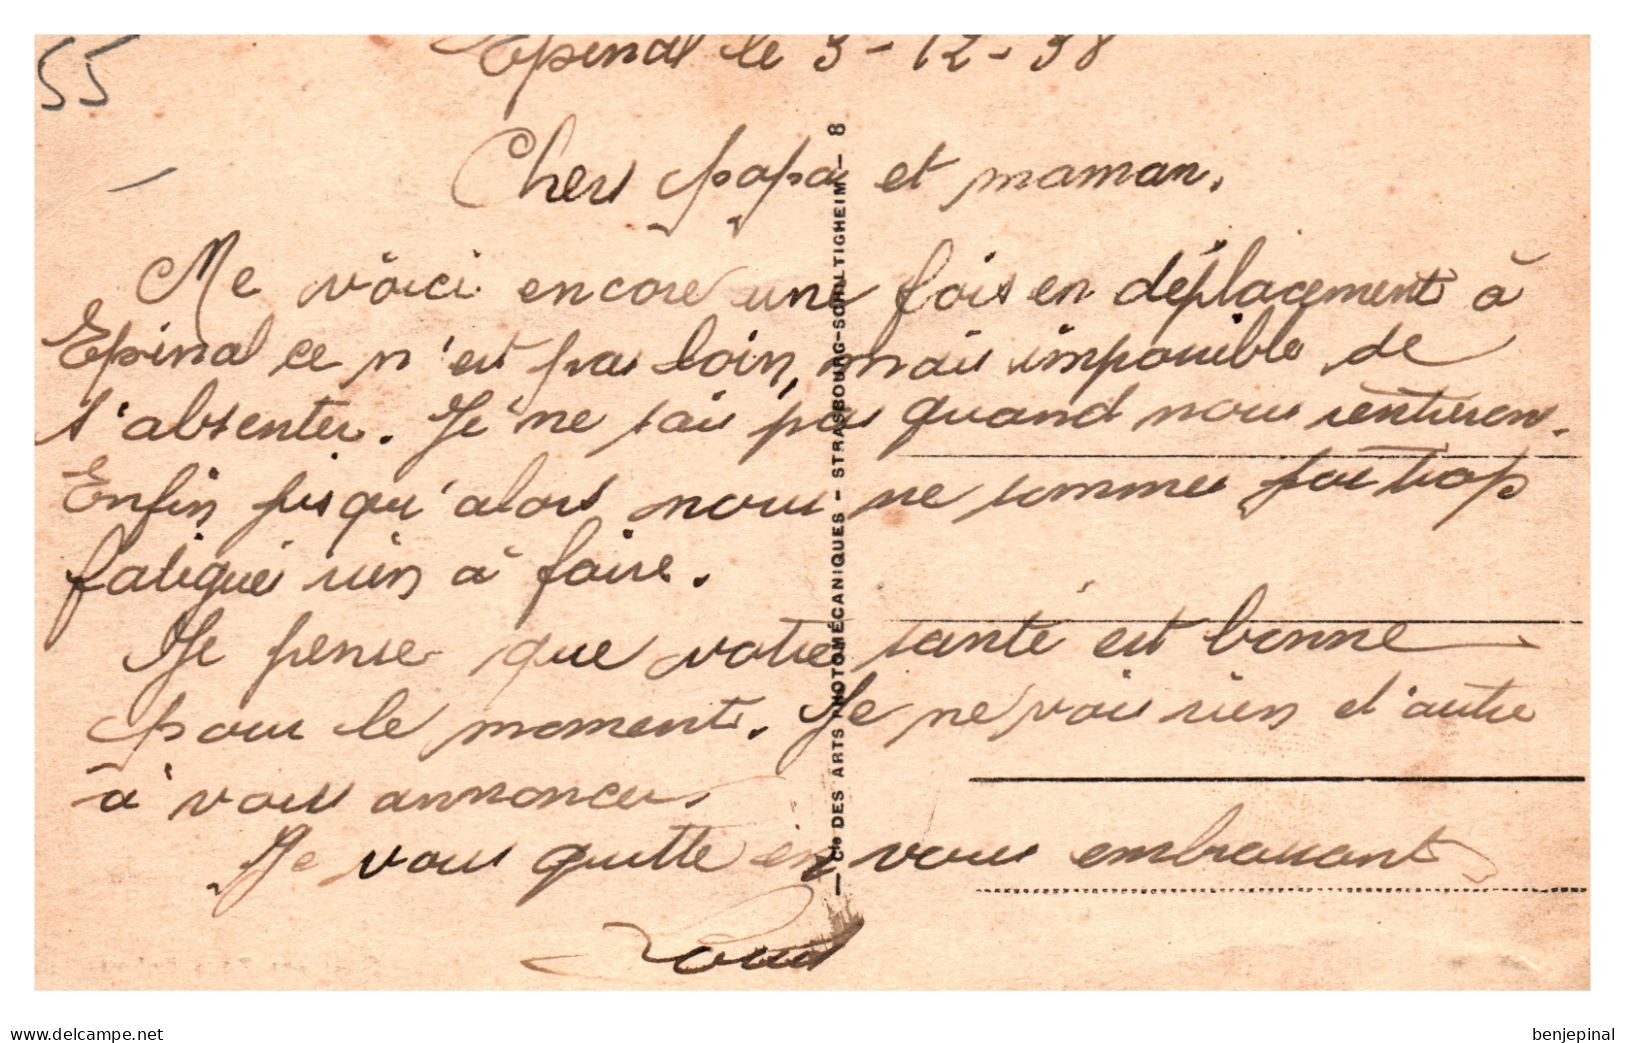 55
Epinal le 3-12-38
Chers papa et maman.
Me voici encore une fois en déplacement à
Epinal ce n'est pas loin, mais impossible de
s'absenter. Je ne sais pas quand nous rentrerons.
Enfin jusqu'alors nous ne sommes pas trop
fatigués rien à faire.
Je pense que votre santé est bonne
pour le moment. Je ne vois rien d'autre
à vous annoncer.
Je vous quitte en vous embrassant
Louis
— Cie DES ARTS PHOTOMÉCANIQUES - STRASBOURG-SCHILTIGHEIM - 8
www.delcampe.net
benjepinal